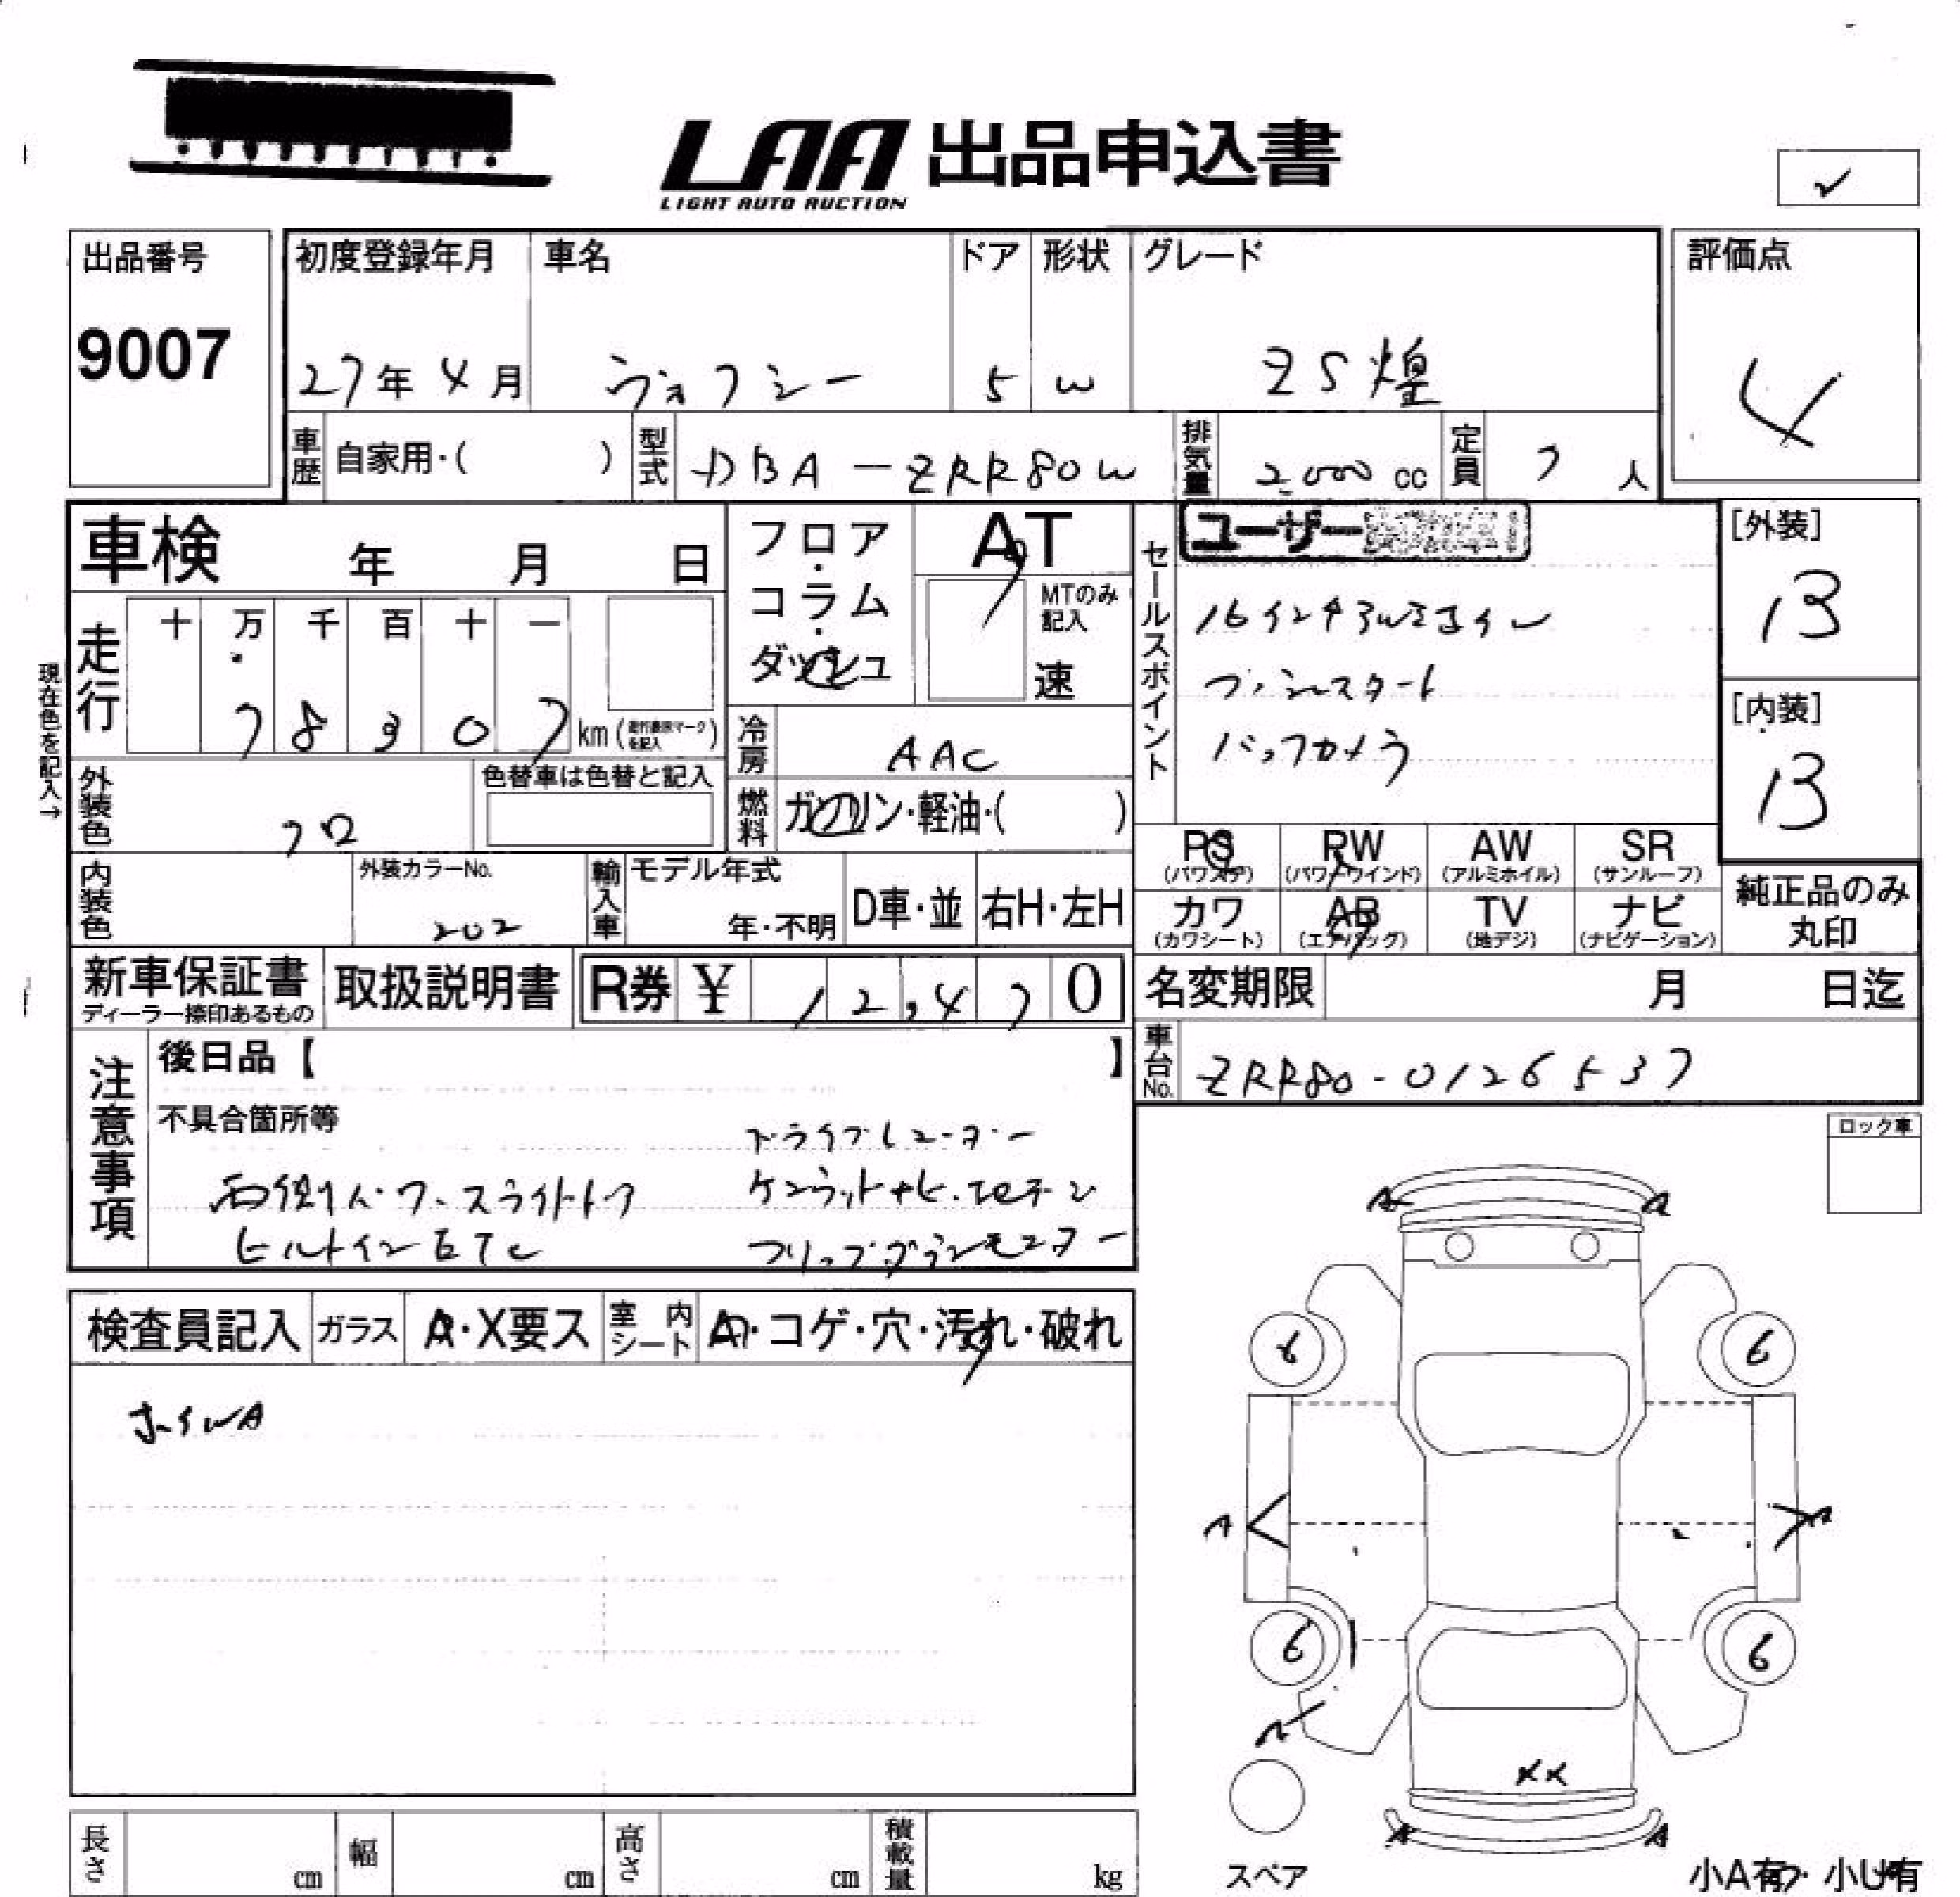 LAA 出品申込書
LIGHT AUTO AUCTION
✓
出品番号
9007
初度登録年月
27年4月
車名
ヴォクシー
ドア
5
形状
W
グレード
ZS煌
評価点
4
車歴
自家用・( )
型式
DBA-ZRR80W
排気量
2,000 cc
定員
7 人
車検 年 月 日
フロア・コラム・ダッシュ
AT
MTのみ記入
速
セールスポイント
ユーザー
16インチアルミホイル
プッシュスタート
バックカメラ
[外装]
B
[内装]
B
現在色を記入→
走行
十 万 千 百 十 一
7 8 3 0 7 km (走行表示マークを記入)
冷房
AAC
外装色
クロ
色替車は色替と記入
燃料
ガソリン・軽油・( )
PS
(パワステ)
PW
(パワーウインド)
AW
(アルミホイル)
SR
(サンルーフ)
カワ
(カワシート)
AB
(エアバッグ)
TV
(地デジ)
ナビ
(ナビゲーション)
純正品のみ
丸印
内装色
外装カラーNo.
202
輸入車
モデル年式
年・不明
D車・並
右H・左H
新車保証書
ディーラー捺印あるもの
取扱説明書
R券 ¥ 12,470
名変期限 月 日迄
車台No.
ZRR80-0126537
注意事項
後日品【 】
不具合箇所等
ドライブレコーダー
両側パワースライドドア
ケンウッドナビ.
ビルトインETC
フリップダウンモニター
ロック車
検査員記入
ガラス
A・X要ス
室内シート
A・コゲ・穴・汚れ・破れ
ホイルA
A A
6 6
A A
6 6
A
XX
A A
スペア
小A有・小U有
長さ cm
幅 cm
高さ cm
積載量 kg